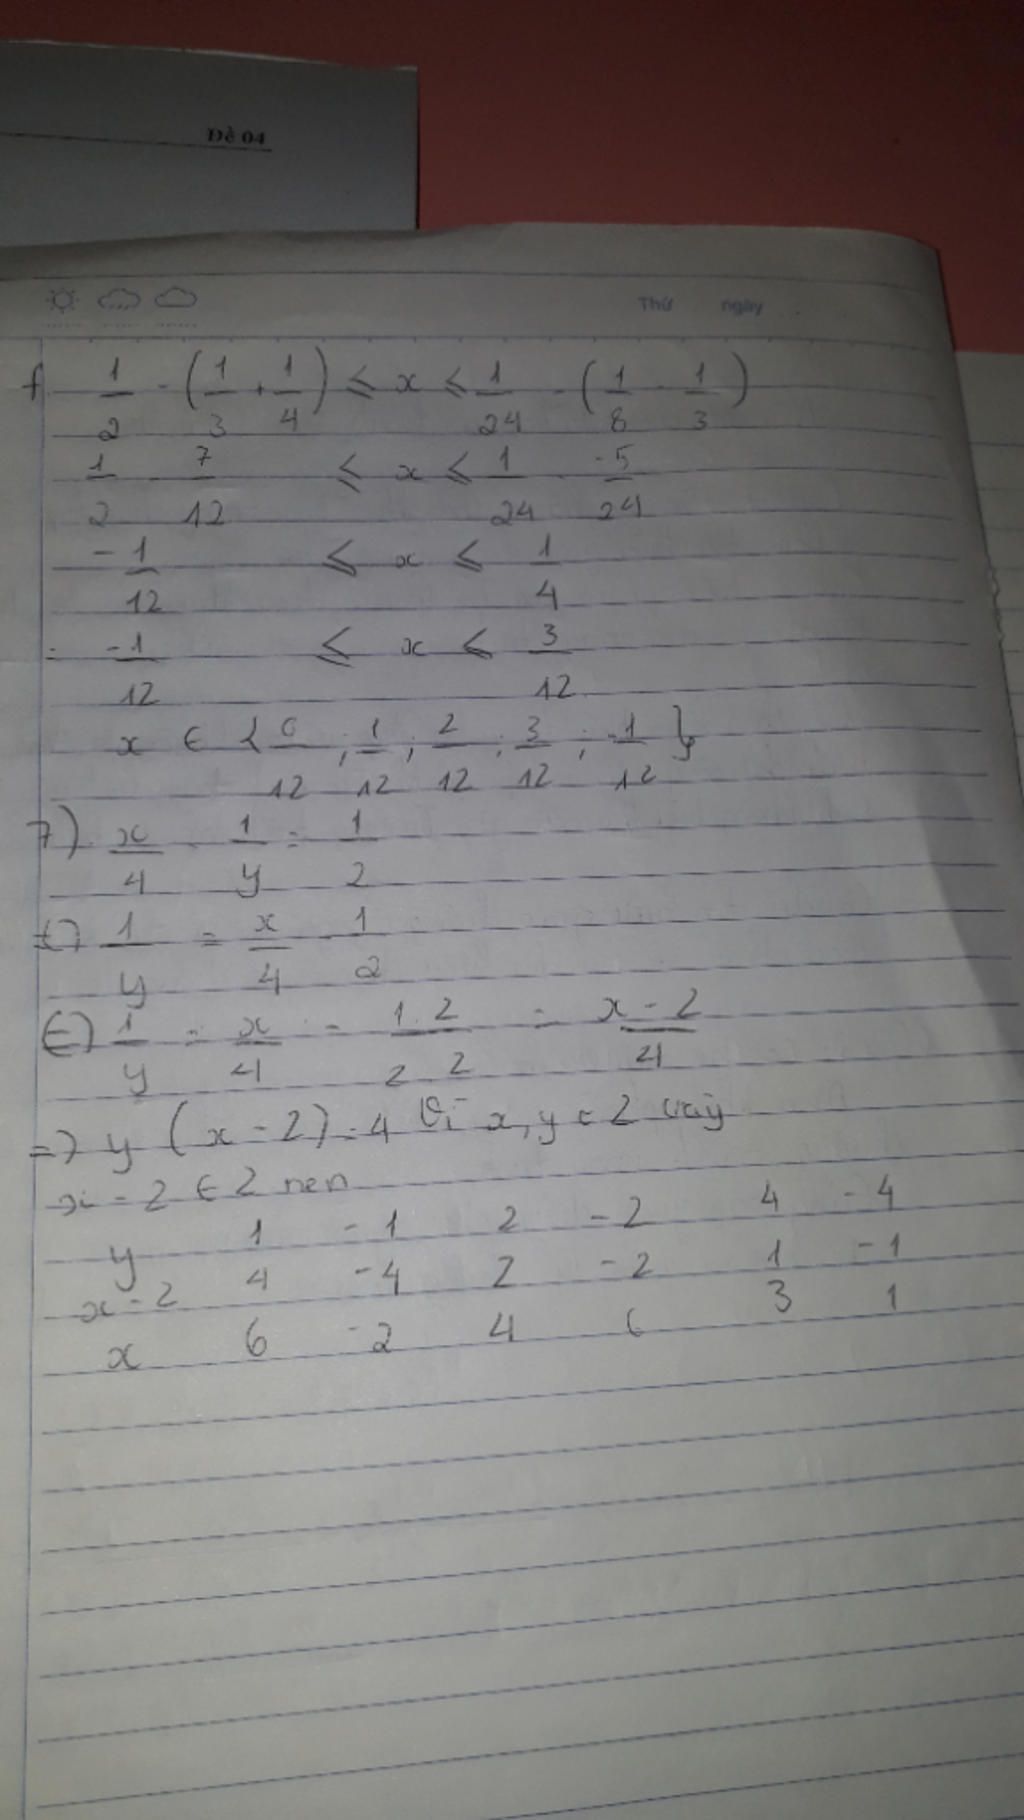 Đề 04
Thứ ngày
f. 1/2 - (1/3 + 1/4) ≤ x ≤ 1/24 - (1/8 - 1/3)
1/2 - 7/12 ≤ x ≤ 1/24 - -5/24
-1/12 ≤ x ≤ 1/4
= -1/12 ≤ x ≤ 3/12
x ∈ { 0/12 ; 1/12 ; 2/12 ; 3/12 ; -1/12 }
7) x/4 - 1/y = 1/2
1/y = x/4 - 1/2
1/y = x/4 - 1.2/2 2 = x - 2/4
=> y (x - 2) = 4 Vì x, y ∈ Z vậy
x - 2 ∈ Z nen
y 1 -1 2 -2 4 -4
x - 2 4 -4 2 -2 1 -1
x 6 -2 4 6 3 1